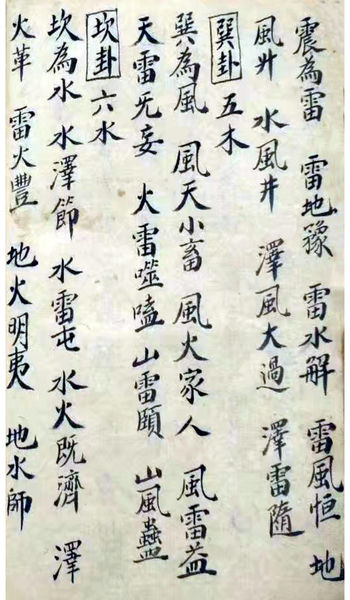 震為雷　雷地豫　雷水解　雷風恒　地
風升　水風井　澤風大過　澤雷隨
巽卦　五木
巽為風　風天小畜　風火家人　風雷益
天雷无妄　火雷噬嗑　山雷頤　山風蠱
坎卦　六水
坎為水　水澤節　水雷屯　水火既濟　澤
火革　雷火豐　地火明夷　地水師